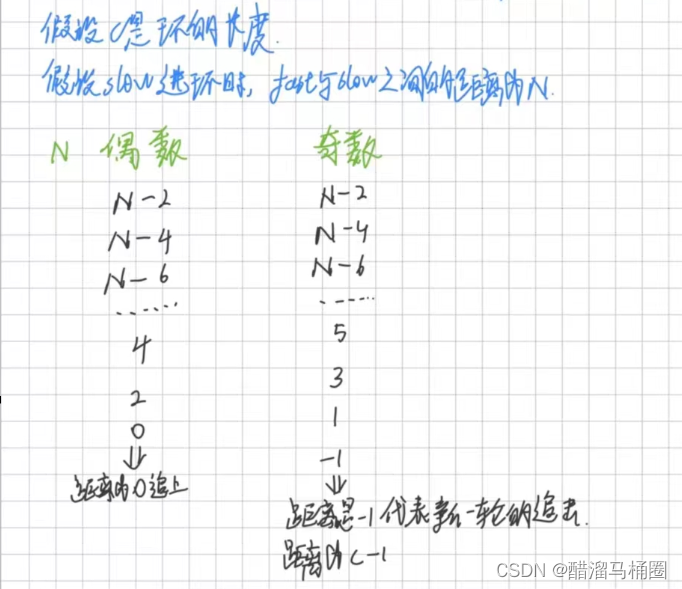 假设C是环的长度.
假设slow进环时, fast与slow之间的距离为N.
N 偶数 奇数
N-2 N-2
N-4 N-4
N-6 N-6
...... ......
4 5
2 3
0 1
⇓ -1
距离为0追上 ⇓
距离是-1代表新一轮的追击.
距离为C-1
CSDN @醋溜马桶圈